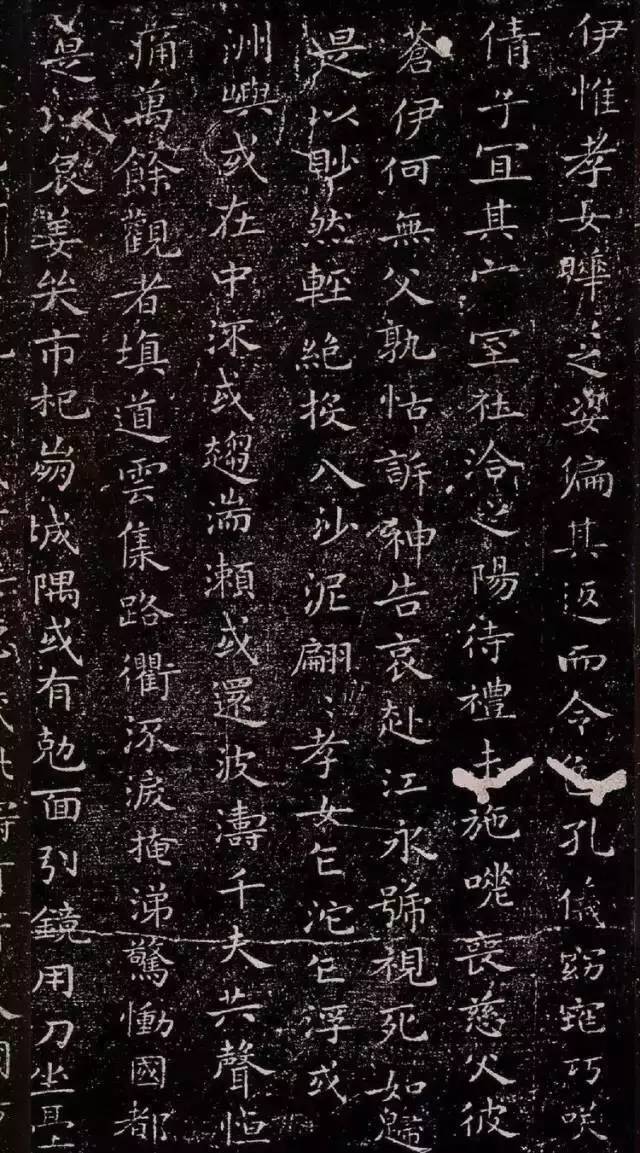 伊惟孝女曄〻之姿偏其返而令色孔儀窈窕巧咲
倩子宜其家室在洽之陽待禮未施嗟喪慈父彼
蒼伊何無父孰怙訴神告哀赴江永號視死如歸
是以眇然輕絕投入沙泥翩〻孝女乍沉乍浮或
洲嶼或在中流或趨湍瀨或還波濤千夫失聲悼
痛萬餘觀者填道雲集路衢流淚掩涕驚慟國都
是以哀姜哭市杞崩城隅或有剋面引鏡用刀坐臺